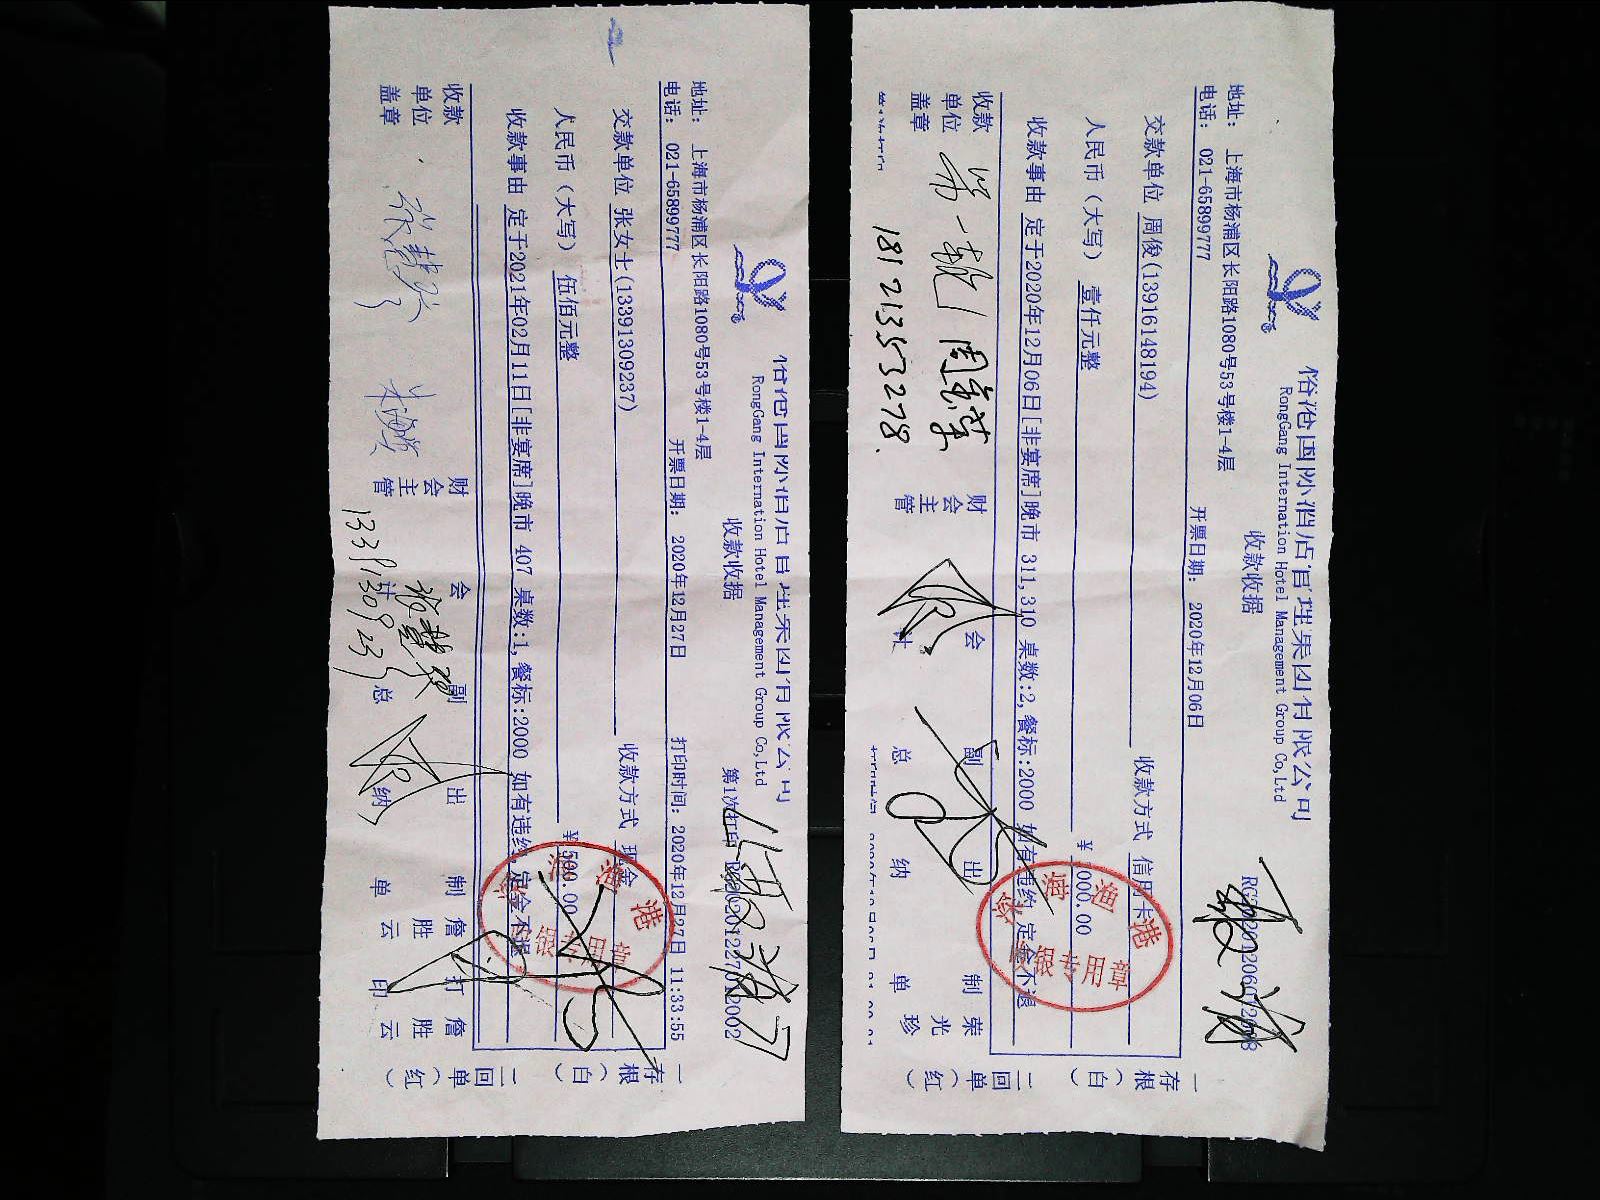 RongGang International Hotel Management Group Co,Ltd
收款收据
第1次打印
地址： 上海市杨浦区长阳路1080号53号楼1-4层
电话： 021-65899777
开票日期： 2020年12月27日
打印时间：2020年12月27日 11:33:55
交款单位 张女士(13391309237)
收款方式 现金
人民币（大写） 伍佰元整
¥ 500.00
收款事由 定于2021年02月11日[非宴席]晚市 407 桌数:1,餐标:2000 如有违约,定金不退
收款单位盖章
财会主管
会计
副总
出纳
制单 詹胜云
打印 詹胜云
一存根（白）
二回单（红）
深海渔港
收银专用章
RongGang International Hotel Management Group Co,Ltd
收款收据
地址： 上海市杨浦区长阳路1080号53号楼1-4层
电话： 021-65899777
开票日期： 2020年12月06日
交款单位 周俊(13916148194)
收款方式 信用卡
人民币（大写） 壹仟元整
¥ 1000.00
收款事由 定于2020年12月06日[非宴席]晚市 311,310 桌数:2,餐标:2000 如有违约,定金不退
收款单位盖章
18121353278.
财会主管
会计
副总
出纳
制单 荣光珍
一存根（白）
二回单（红）
深海渔港
收银专用章